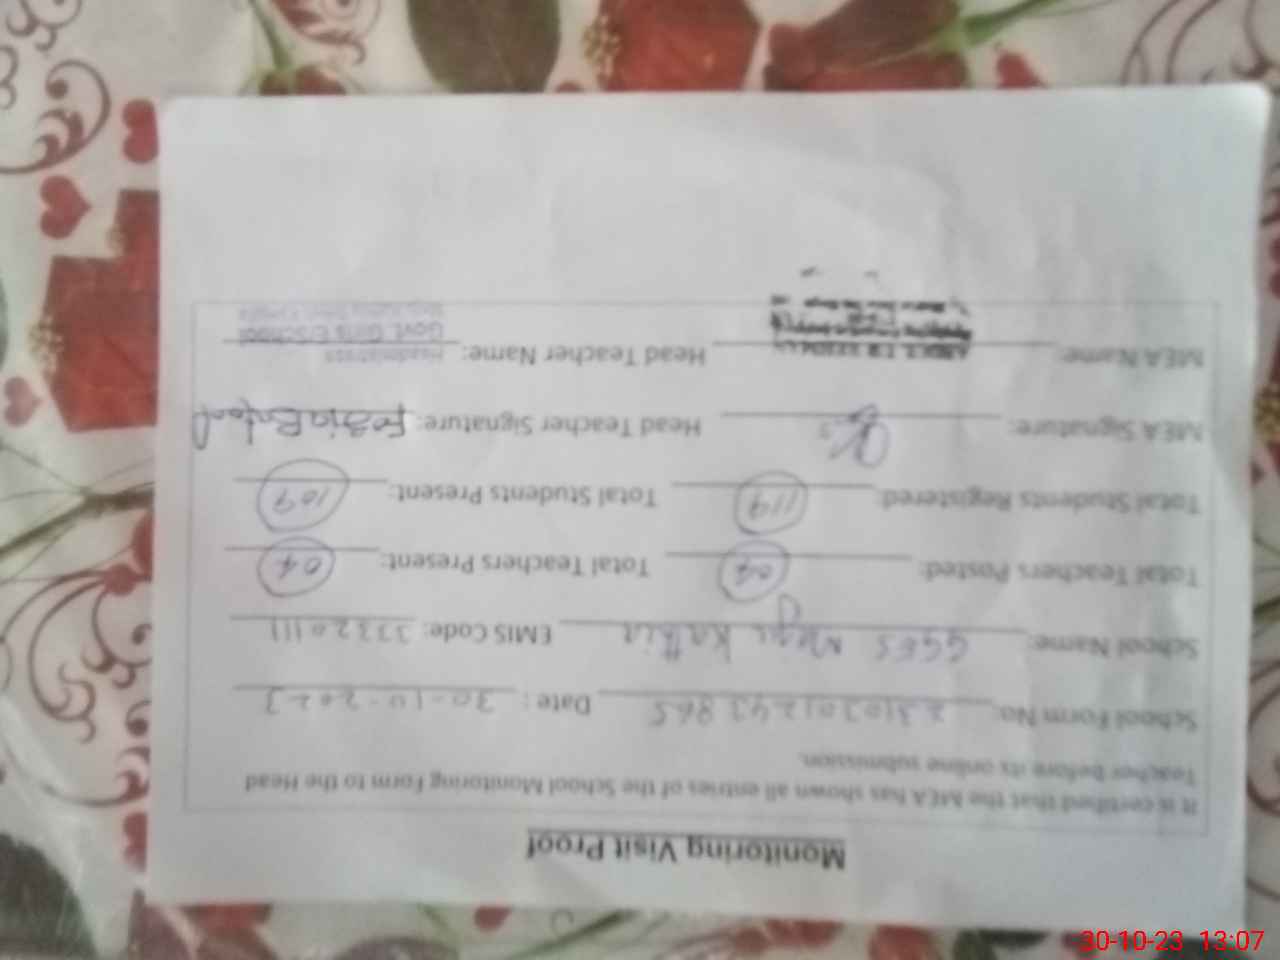 Monitoring Visit Proof
It is certified that the MEA has shown all entries of the School Monitoring Form to the Head
Teacher before its online submission.
School Form No: 2310301243865 Date: 30-10-2023
School Name: GGES Kathia EMIS Code: 33320111
Total Teachers Posted: 04 Total Teachers Present: 04
Total Students Registered: 119 Total Students Present: 109
MEA Signature: Head Teacher Signature: Fozia Batool
MEA Name: Head Teacher Name: Headmistress
Govt. Girls E/School
30-10-23 13:07